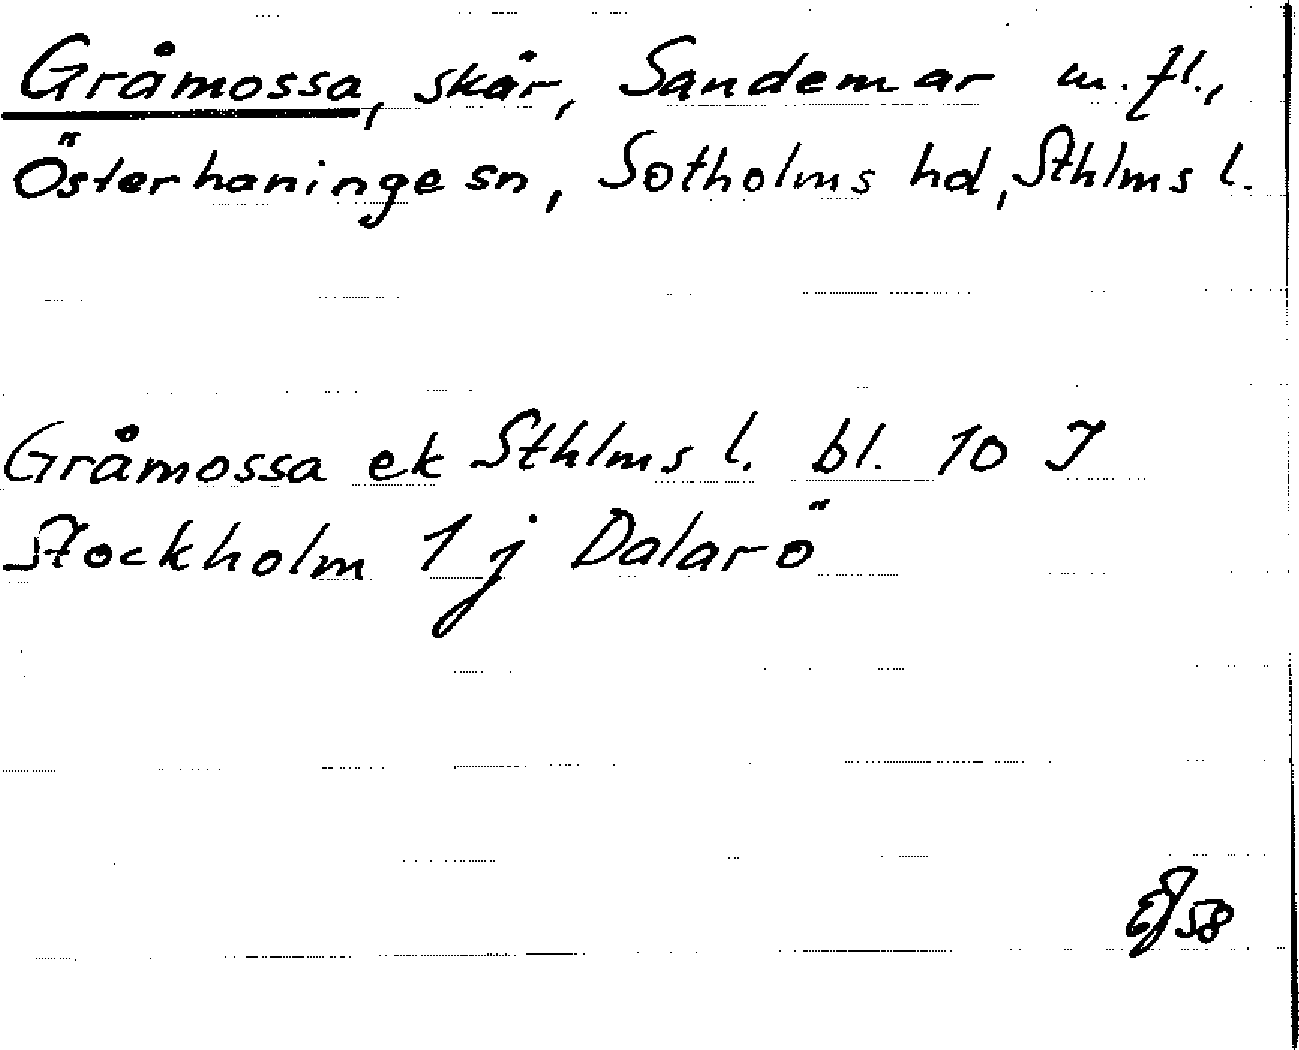 Gråmossa, skär, Sandemar m.fl.,
Österhaninge sn, Sotholms hd, Sthlms l.
Gråmossa ek Sthlms l. bl. 10 J
Stockholm 1 j Dalarö
58